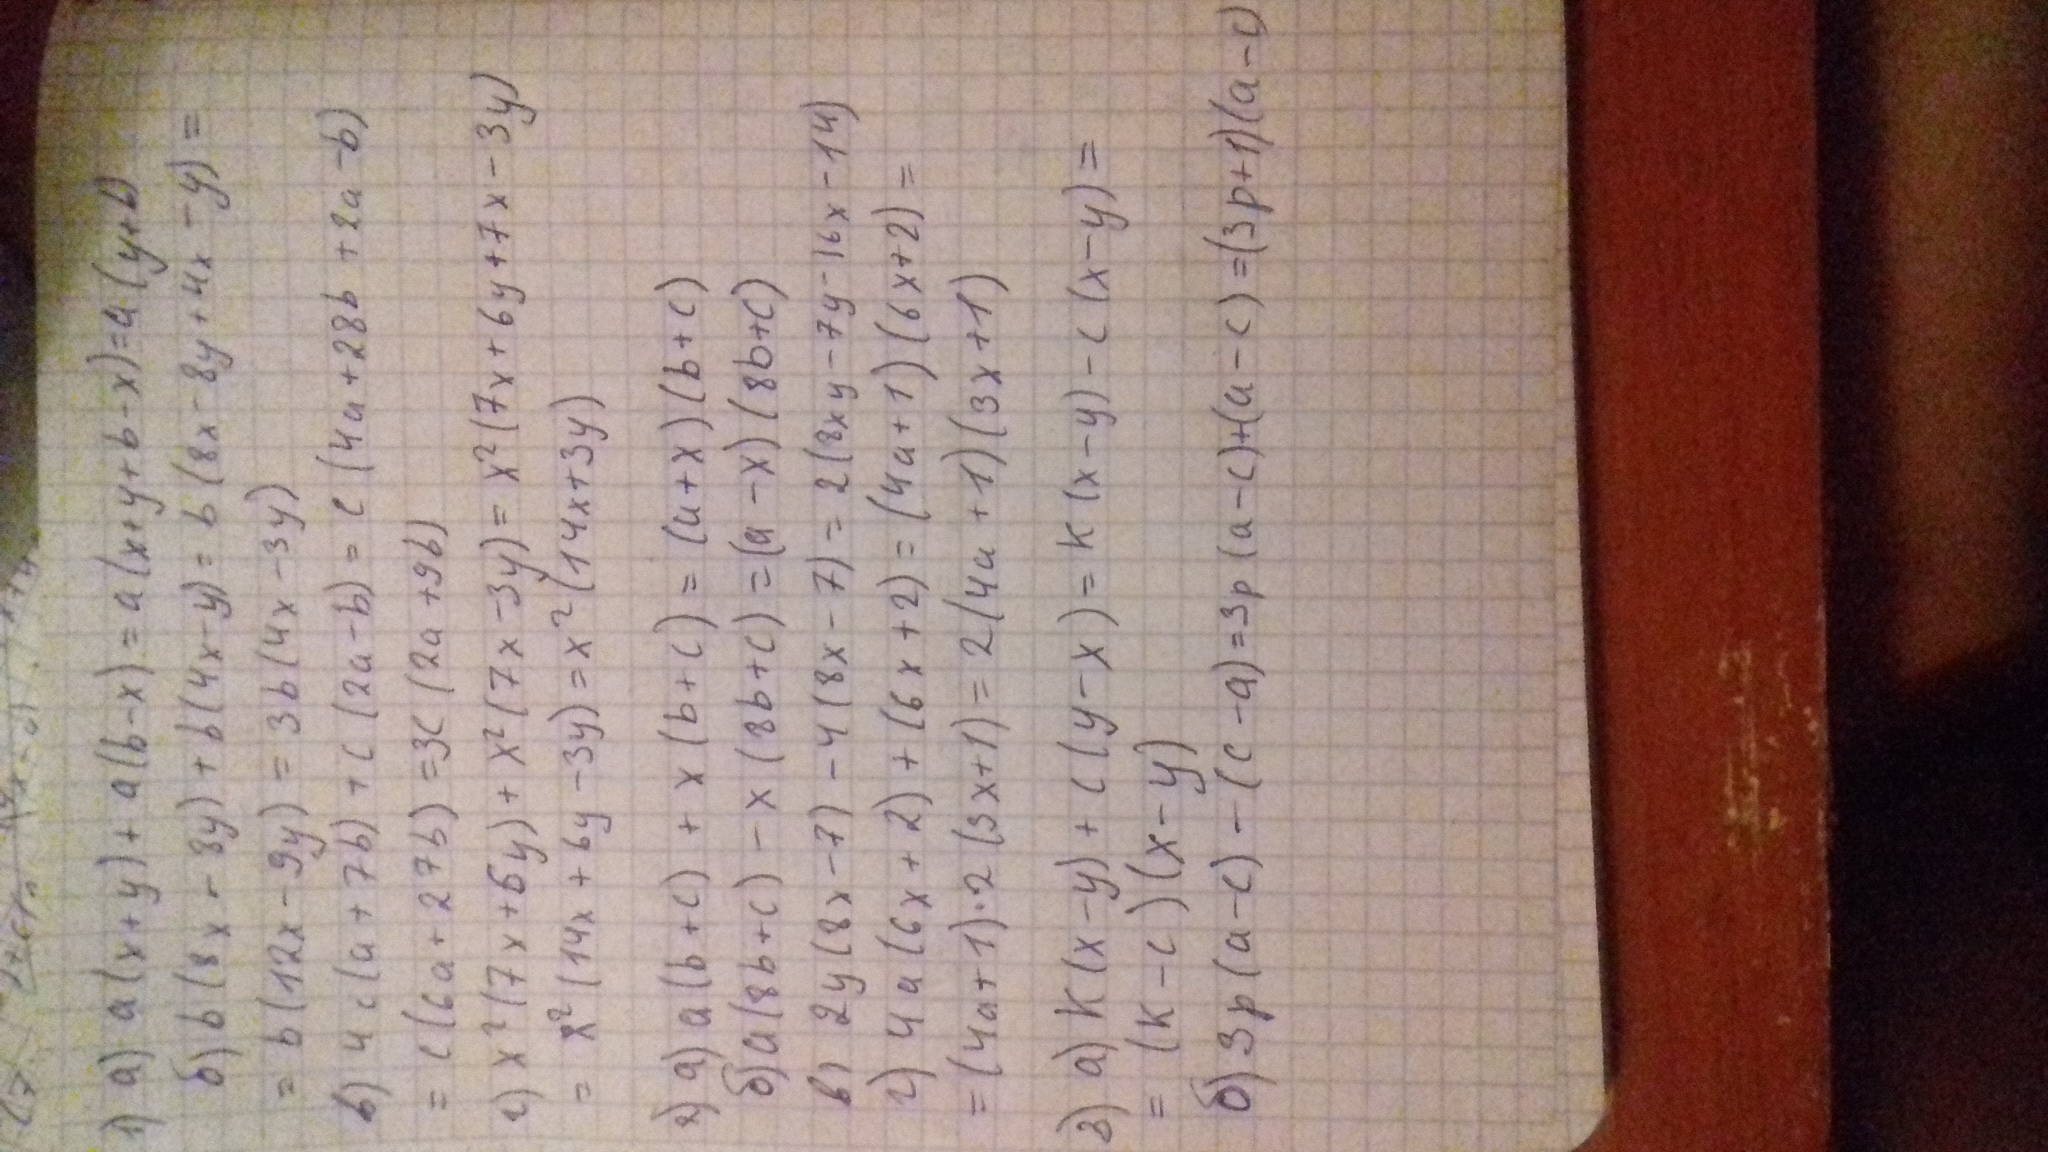 1) а) a(x+y)+a(b-x)=a(x+y+b-x)=a(y+b)
б) b(8x-8y)+b(4x-y)=b(8x-8y+4x-y)=
=b(12x-9y)=3b(4x-3y)
в) 4c(a+7b)+c(2a-b)=c(4a+28b+2a-b)
=c(6a+27b)=3c(2a+9b)
г) x²(7x+6y)+x²(7x-3y)=x²(7x+6y+7x-3y)
=x²(14x+6y-3y)=x²(14x+3y)
2) а) a(b+c)+x(b+c)=(a+x)(b+c)
б) a(8b+c)-x(8b+c)=(a-x)(8b+c)
в) 2y(8x-7)-4(8x-7)=2(8xy-7y-16x-14)
г) 4a(6x+2)+(6x+2)=(4a+1)(6x+2)=
=(4a+1)·2(3x+1)=2(4a+1)(3x+1)
3) а) K(x-y)+c(y-x)=K(x-y)-c(x-y)=
=(K-c)(x-y)
б) 3p(a-c)-(c-a)=3p(a-c)+(a-c)=(3p+1)(a-c)